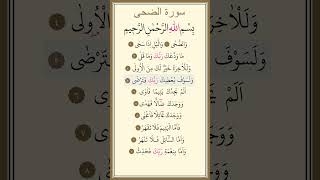 سورة الضحى
بِسْمِ اللَّهِ الرَّحْمَنِ الرَّحِيمِ
وَالضُّحَى ۝ وَاللَّيْلِ إِذَا سَجَى ۝
مَا وَدَّعَكَ رَبُّكَ وَمَا قَلَى ۝
وَلَلْآخِرَةُ خَيْرٌ لَكَ مِنَ الْأُولَى ۝
وَلَسَوْفَ يُعْطِيكَ رَبُّكَ فَتَرْضَى ۝
أَلَمْ يَجِدْكَ يَتِيمًا فَآوَى ۝
وَوَجَدَكَ ضَالًّا فَهَدَى ۝
وَوَجَدَكَ عَائِلًا فَأَغْنَى ۝
فَأَمَّا الْيَتِيمَ فَلَا تَقْهَرْ ۝
وَأَمَّا السَّائِلَ فَلَا تَنْهَرْ ۝
وَأَمَّا بِنِعْمَةِ رَبِّكَ فَحَدِّثْ ۝